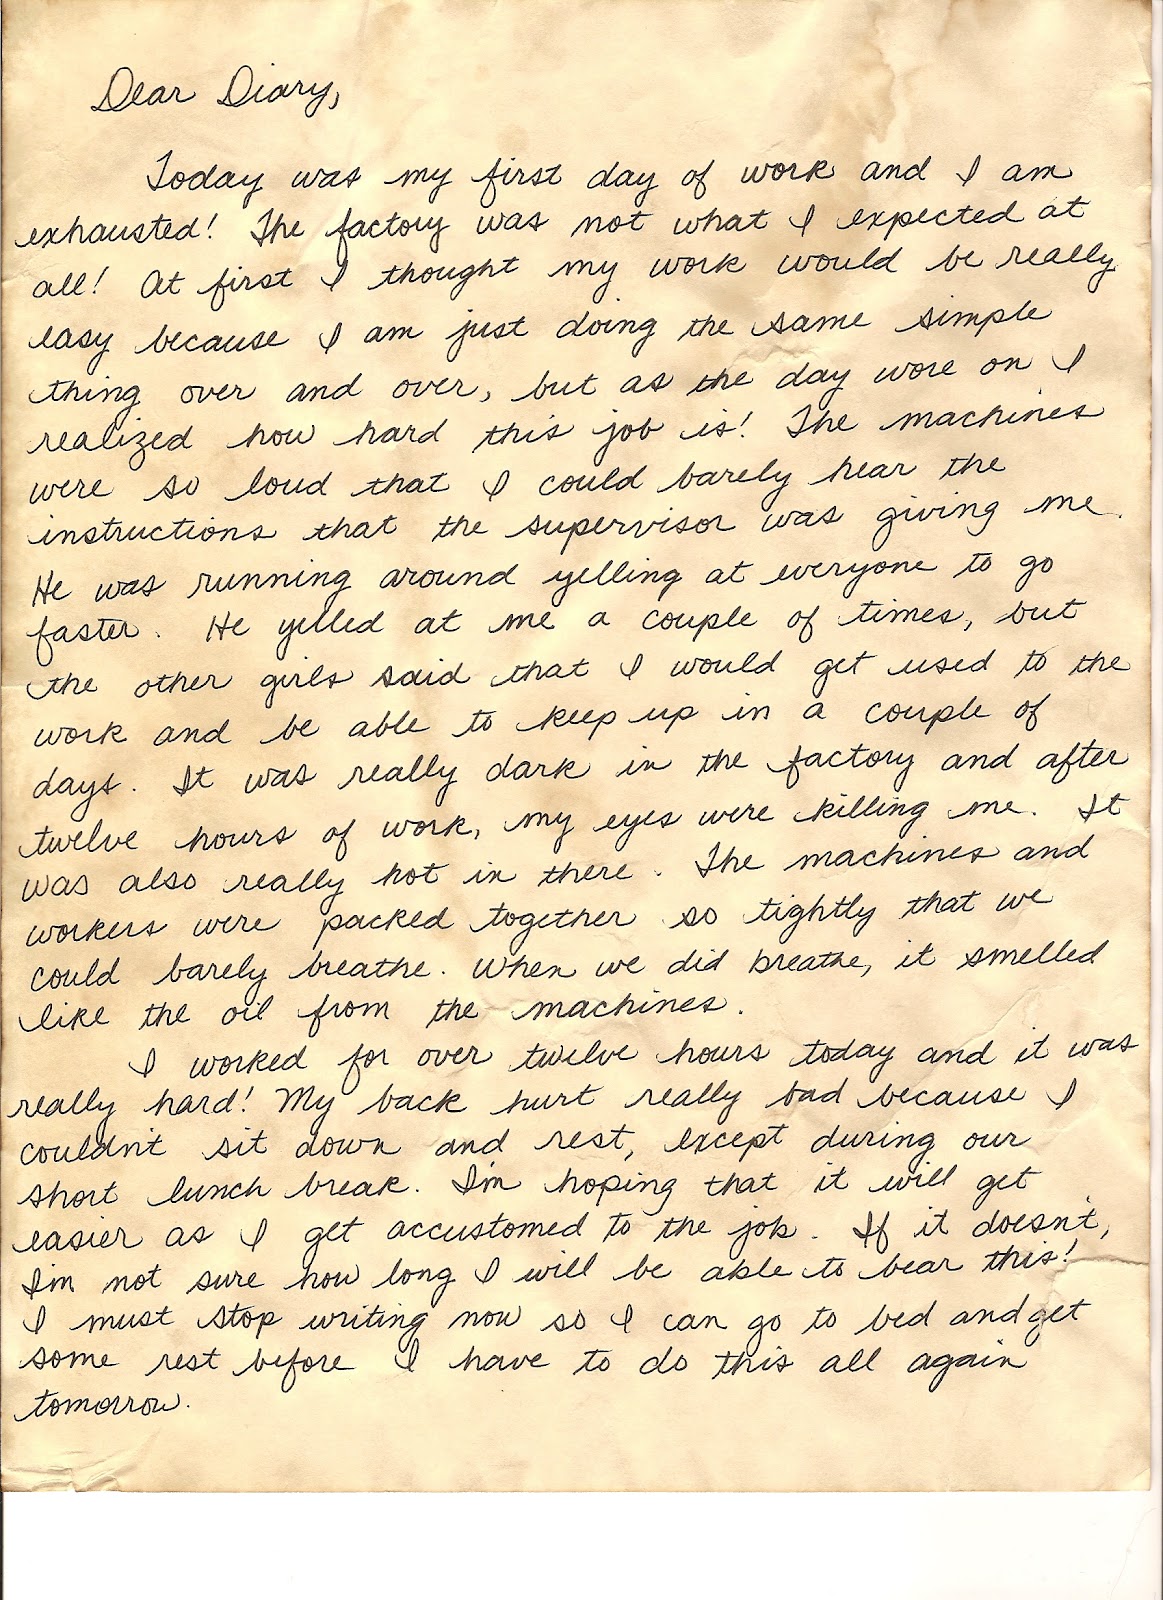 Dear Diary,
Today was my first day of work and I am
exhausted! The factory was not what I expected at
all! At first I thought my work would be really
easy because I am just doing the same simple
thing over and over, but as the day wore on I
realized how hard this job is! The machines
were so loud that I could barely hear the
instructions that the supervisor was giving me.
He was running around yelling at everyone to go
faster. He yelled at me a couple of times, but
the other girls said that I would get used to the
work and be able to keep up in a couple of
days. It was really dark in the factory and after
twelve hours of work, my eyes were killing me. It
was also really hot in there. The machines and
workers were packed together so tightly that we
could barely breathe. When we did breathe, it smelled
like the oil from the machines.
I worked for over twelve hours today and it was
really hard! My back hurt really bad because I
couldn't sit down and rest, except during our
short lunch break. I'm hoping that it will get
easier as I get accustomed to the job. If it doesn't,
I'm not sure how long I will be able to bear this!
I must stop writing now so I can go to bed and get
some rest before I have to do this all again
tomorrow.